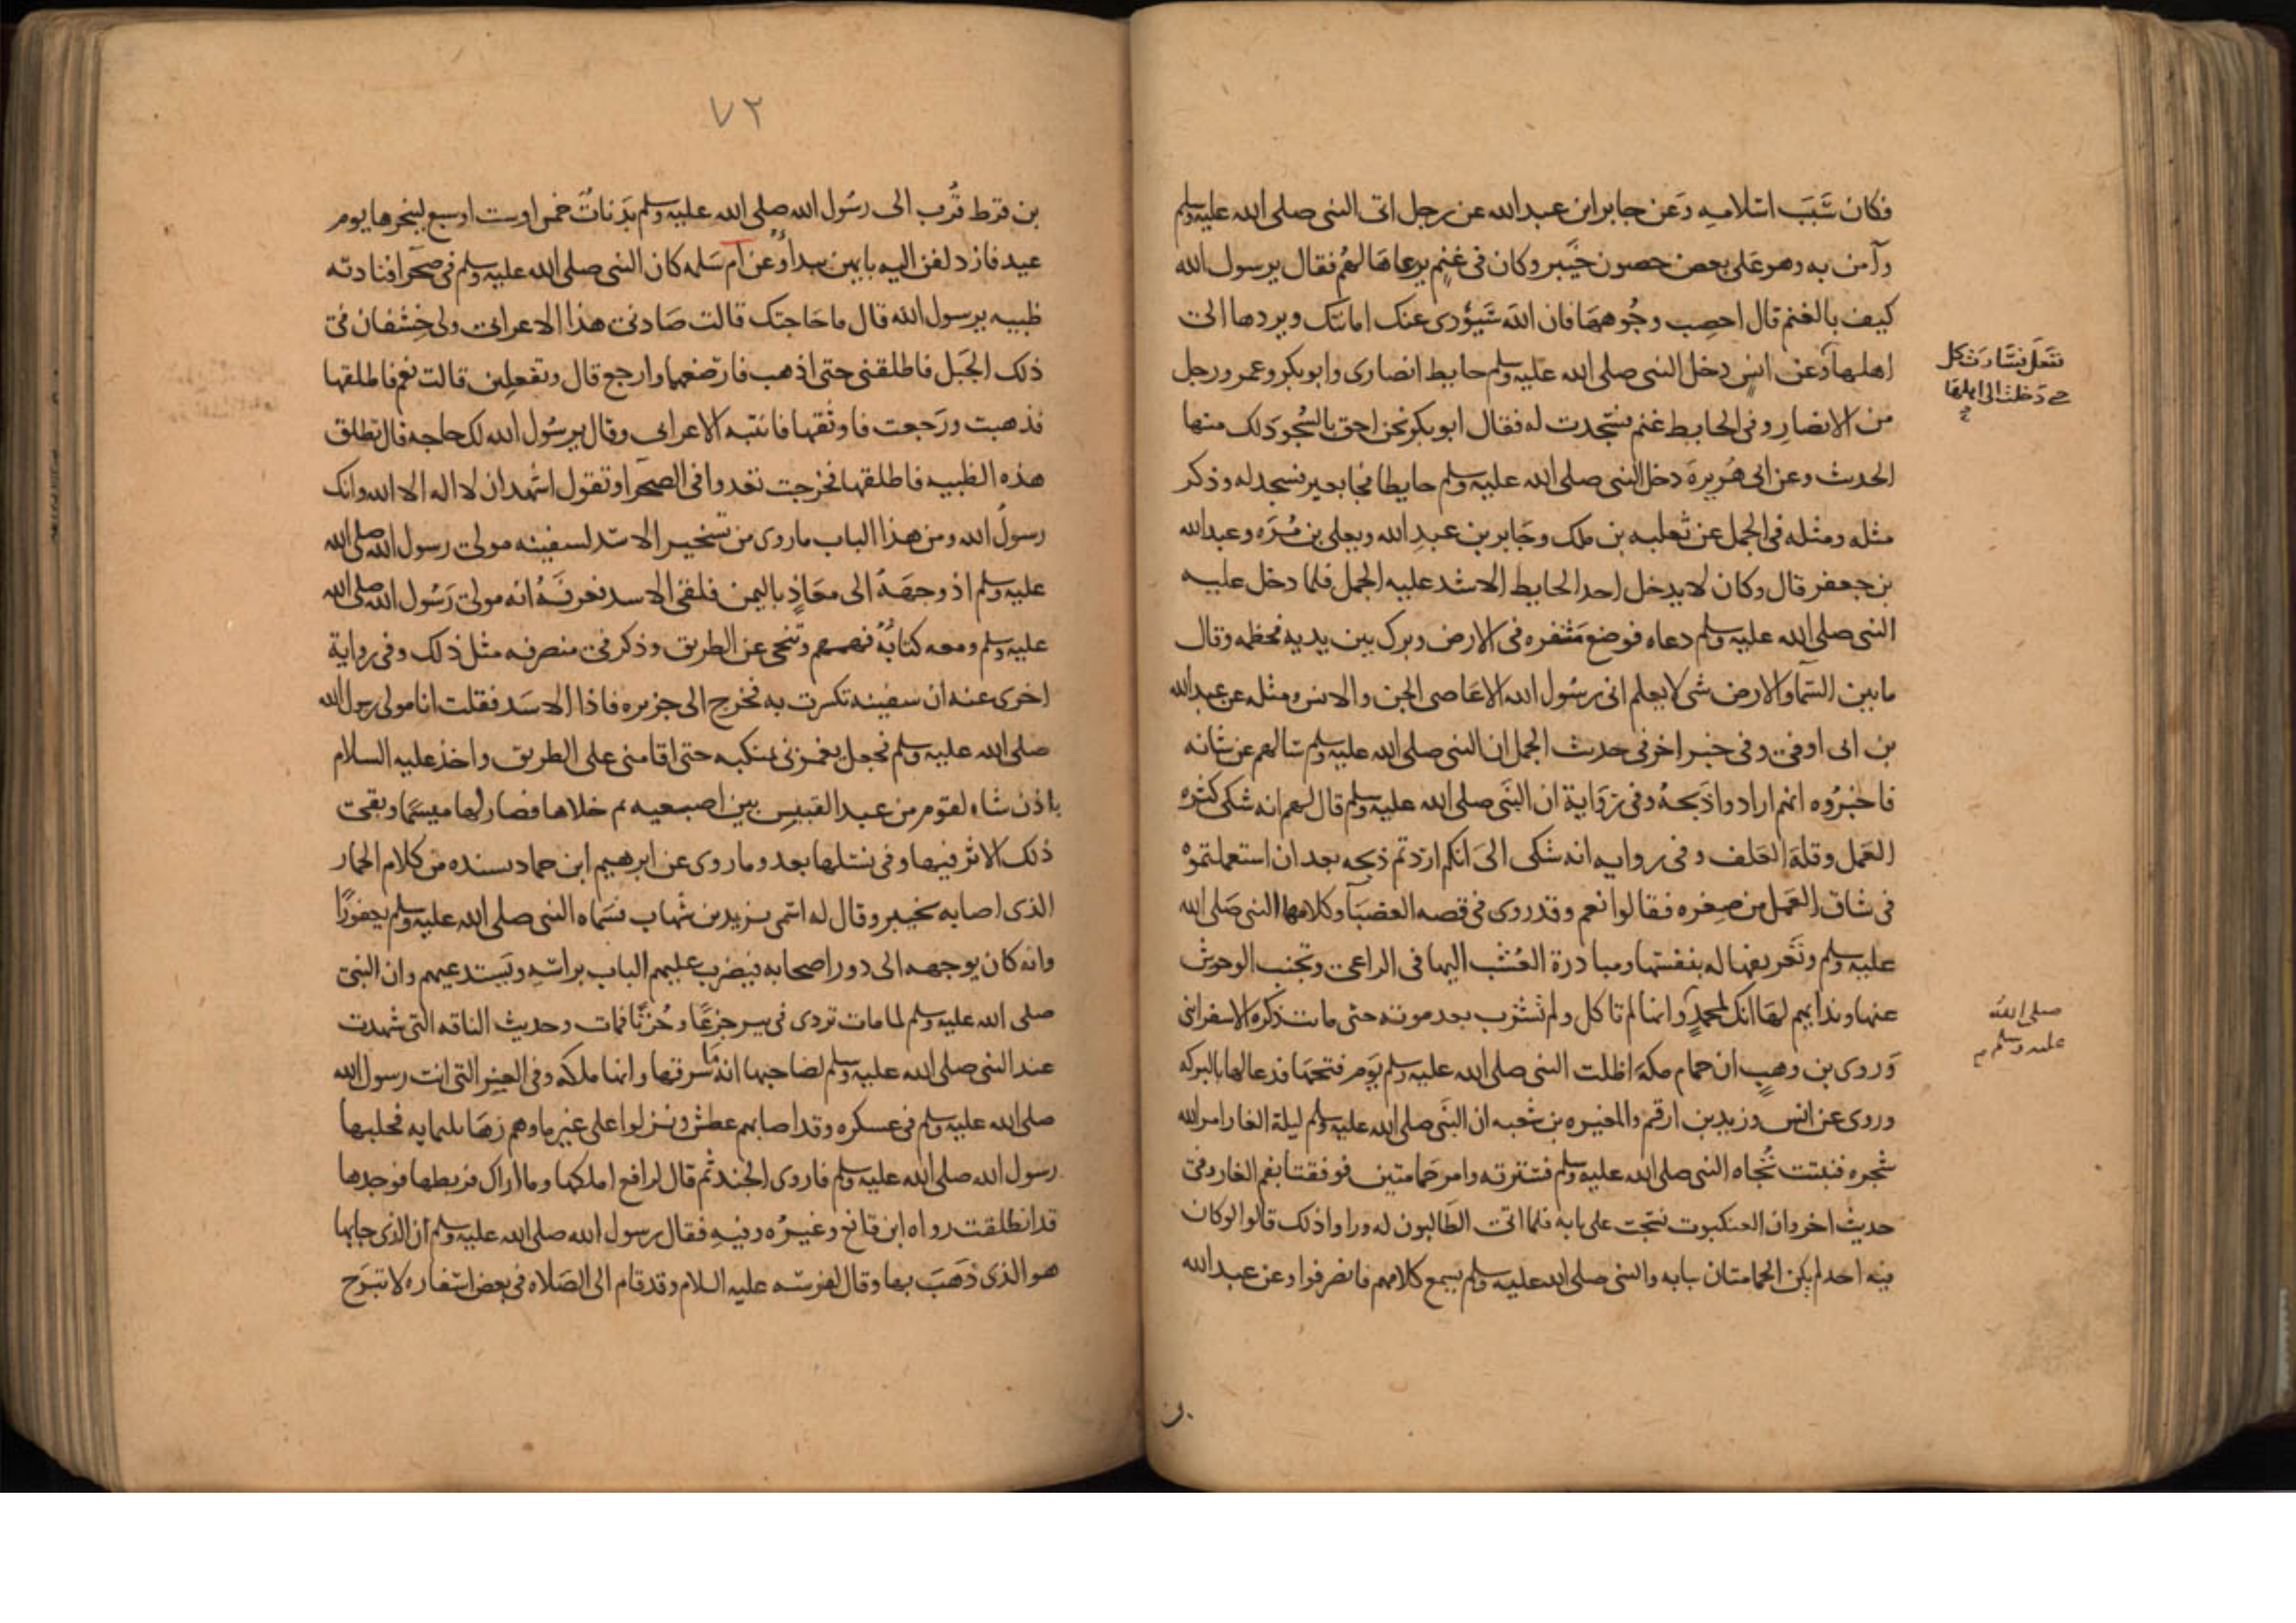 فكان سبب اسلامه وعن جابر ابن عبد الله عن رجل اتى النبى صلى الله عليه وسلم
وآمن به وهو على بعض حصون خيبر وكان فى غنم يرعاها لهم فقال يرسول الله
كيف بالغنم قال احصب وجوهها فان الله سيؤدى عنك امانتك ويردها الى
اهلها وعن انس دخل النبى صلى الله عليه وسلم حايط انصارى وابو بكر وعمر ورجل
من الانصار وفى الحايط غنم فسجدت له فقال ابو بكر نحن احق بالسجود لك منها
الحدث وعن ابى هريرة دخل النبى صلى الله عليه وسلم حايطا فجا بعير فسجد له وذكر
مثله ومثله فى الجمل عن ثعلبه بن ملك وجابر بن عبد الله ويعلى بن مره وعبد الله
بن جعفر قال وكان لا يدخل احد الحايط الا شد عليه الجمل فلما دخل عليه
النبى صلى الله عليه وسلم دعاه فوضع مشفره فى الارض وبرك بين يديه فخطمه وقال
ما بين السما والارض شى لا يعلم انى رسول الله الا عاصى الجن والانس ومثله عن عبد الله
بن ابى اوفى وفى خبر اخر فى حدث الجمل ان النبى صلى الله عليه وسلم سالهم عن شانه
فاخبروه انهم ارادوا ذبحه وفى رواية ان النبى صلى الله عليه وسلم قال لهم انه شكى كثره
العمل وقلة العلف وفى روايه انه شكى الى انكم اردتم ذبحه بعد ان استعملتموه
فى شاق العمل من صغره فقالوا نعم وقد روى فى قصه العضبا وكلامها النبى صلى الله
عليه وسلم وتعريفها له بنفسها ومبادرة العشب اليها فى الراعى وتجنب الوحوش
عنها وندايهم لها انك لمحمد وانها لم تاكل ولم تشرب بعد موته حتى ماتت ذكره الاسفرانى
وروى بن وهب ان حمام مكة اظلت النبى صلى الله عليه وسلم يوم فتحها فدعا لها بالبركه
وروى عن انس وزيد بن ارقم والمغيره بن شعبه ان النبى صلى الله عليه وسلم ليلة الغار امر الله
شجره فنبتت تجاه النبى صلى الله عليه وسلم فسترته وامر حمامتين فوقفتا بفم الغار وفى
حديث اخر وان العنكبوت نسجت على بابه فلما اتى الطالبون له وراوا ذلك قالوا لو كان
فيه احد لم يكن الحمامتان ببابه والنبى صلى الله عليه وسلم يسمع كلامهم فانصرفوا وعن عبد الله
دخلت الى اهلها
صلى الله
عليه وسلم
٧٢
بن قرط قرب الى رسول الله صلى الله عليه وسلم بدنات خمس او ست او سبع لينحرها يوم
عيد فازدلفن اليه بايهن يبدا وعن ام سلمه كان النبى صلى الله عليه وسلم فى صحرا فنادته
ظبيه يرسول الله قال ما حاجتك قالت صادنى هذا الاعرابى ولى خشفان فى
ذلك الجبل فاطلقنى حتى اذهب فارضعهما وارجع قال وتفعلين قالت نعم فاطلقها
فذهبت ورجعت فاوثقها فانتبه الاعرابى وقال يرسول الله لك حاجه قال تطلق
هذه الظبيه فاطلقها فخرجت تعدوا فى الصحرا وتقول اشهد ان لا اله الا الله وانك
رسول الله ومن هذا الباب ما روى من تسخير الاسد لسفينه مولى رسول الله صلى الله
عليه وسلم اذ وجهه الى معاذ باليمن فلقى الاسد فعرفه انه مولى رسول الله صلى الله
عليه وسلم ومعه كتابه فهمهم وتنحى عن الطريق وذكر فى منصرفه مثل ذلك وفى رواية
اخرى عنه ان سفينه تكسرت به فخرج الى جزيره فاذا الاسد فقلت انا مولى رسول الله
صلى الله عليه وسلم فجعل يغمزنى بمنكبه حتى اقامنى على الطريق واخذ عليه السلام
باذن شاه لقوم من عبد القيس بين اصبعيه ثم خلاها فصار لها ميسما وبقى
ذلك الاثر فيها وفى نسلها بعد وما روى عن ابرهيم ابن حماد بسنده من كلام الحمار
الذى اصابه بخيبر وقال له اسمى يزيد بن شهاب فسماه النبى صلى الله عليه وسلم يعفورا
وانه كان يوجهه الى دور اصحابه فيضرب عليهم الباب براسه ويستدعيهم وان النبى
صلى الله عليه وسلم لما مات تردى فى بير جزعا وحزنا فمات وحديث الناقه التى شهدت
عند النبى صلى الله عليه وسلم لصاحبها انه ما سرقها وانها ملكه وفى العنز التى اتت رسول الله
صلى الله عليه وسلم فى عسكره وقد اصابهم عطش ونزلوا على غير ما وهم زها ثلثمايه فحلبها
رسول الله صلى الله عليه وسلم فاروى الجند ثم قال لرافع املكها وما اراك فربطها فوجدها
قد انطلقت رواه ابن قانع وغيره وفيه فقال رسول الله صلى الله عليه وسلم ان الذى جا بها
هو الذى ذهب بها وقال لفرسه عليه السلام وقد قام الى الصلاه فى بعض اسفاره لا تبرح